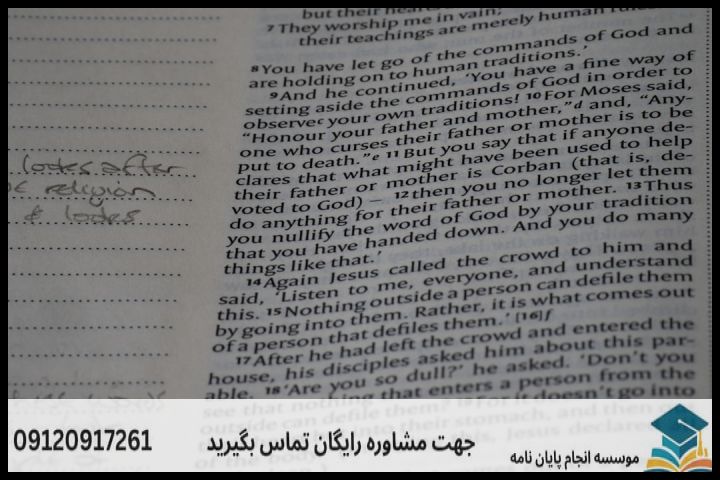 but their hearts
7 They worship me in vain;
their teachings are merely human rules.
8 You have let go of the commands of God and
are holding on to human traditions.'
9 And he continued, 'You have a fine way of
setting aside the commands of God in order to
observe your own traditions! 10 For Moses said,
"Honour your father and mother," d and, "Any-
one who curses their father or mother is to be
put to death." e 11 But you say that if anyone de-
clares that what might have been used to help
their father or mother is Corban (that is, de-
voted to God) – 12 then you no longer let them
do anything for their father or mother. 13 Thus
you nullify the word of God by your tradition
that you have handed down. And you do many
things like that.'
14 Again Jesus called the crowd to him and
said, 'Listen to me, everyone, and understand
this. 15 Nothing outside a person can defile them
by going into them. Rather, it is what comes out
of a person that defiles them.' [16] f
17 After he had left the crowd and entered the
house, his disciples asked him about this par-
able. 18 'Are you so dull?' he asked. 'Don't you
see that nothing that enters a person from the
outside can defile them? 19 For it doesn't go into
their stomach, and then
Jesus declared
of the body.
looks after
religion
& looks
جهت مشاوره رایگان تماس بگیرید
09120917261
موسسه انجام پایان نامه